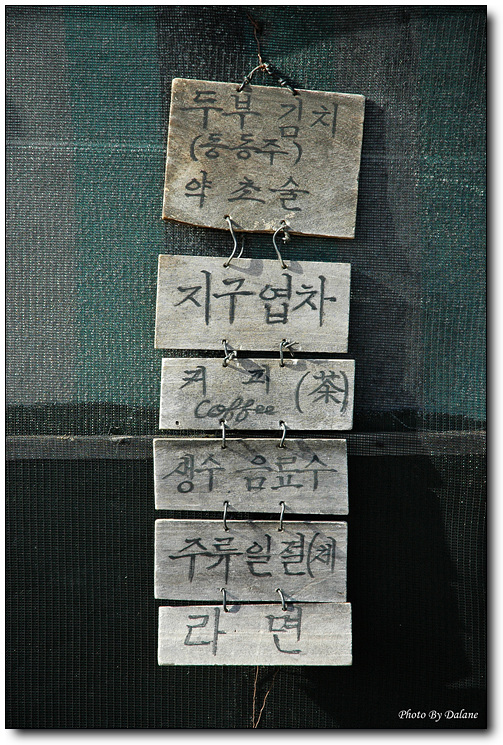 두부 김치
(동동주)
약초술
지구엽차
커피 (茶)
Coffee
생수 음료수
주류일절(체)
라면
Photo By Dalane